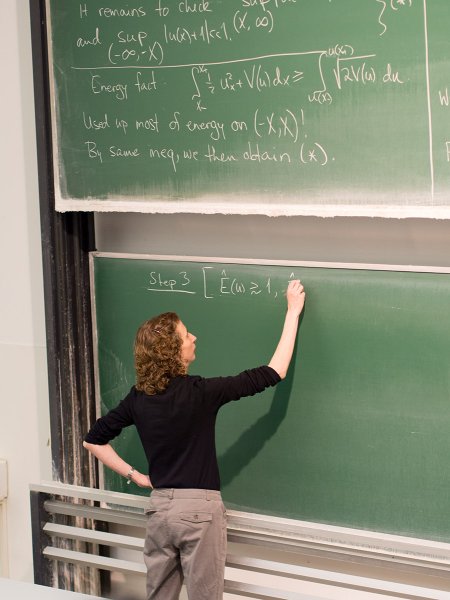 It remains to check: sup
and sup |u(x)+1|<<1, (X, ∞) } (*,
(-∞, -X)
Energy fact: ∫_X^{X_1} ½ u_x² + V(u) dx ≥ ∫_{u(X)}^{u(X_1)} √2V(u) du
Used up most of energy on (-X, X)!
By same ineq, we then obtain (*).
Step 3 [ Ê(u) ≳ 1, ^